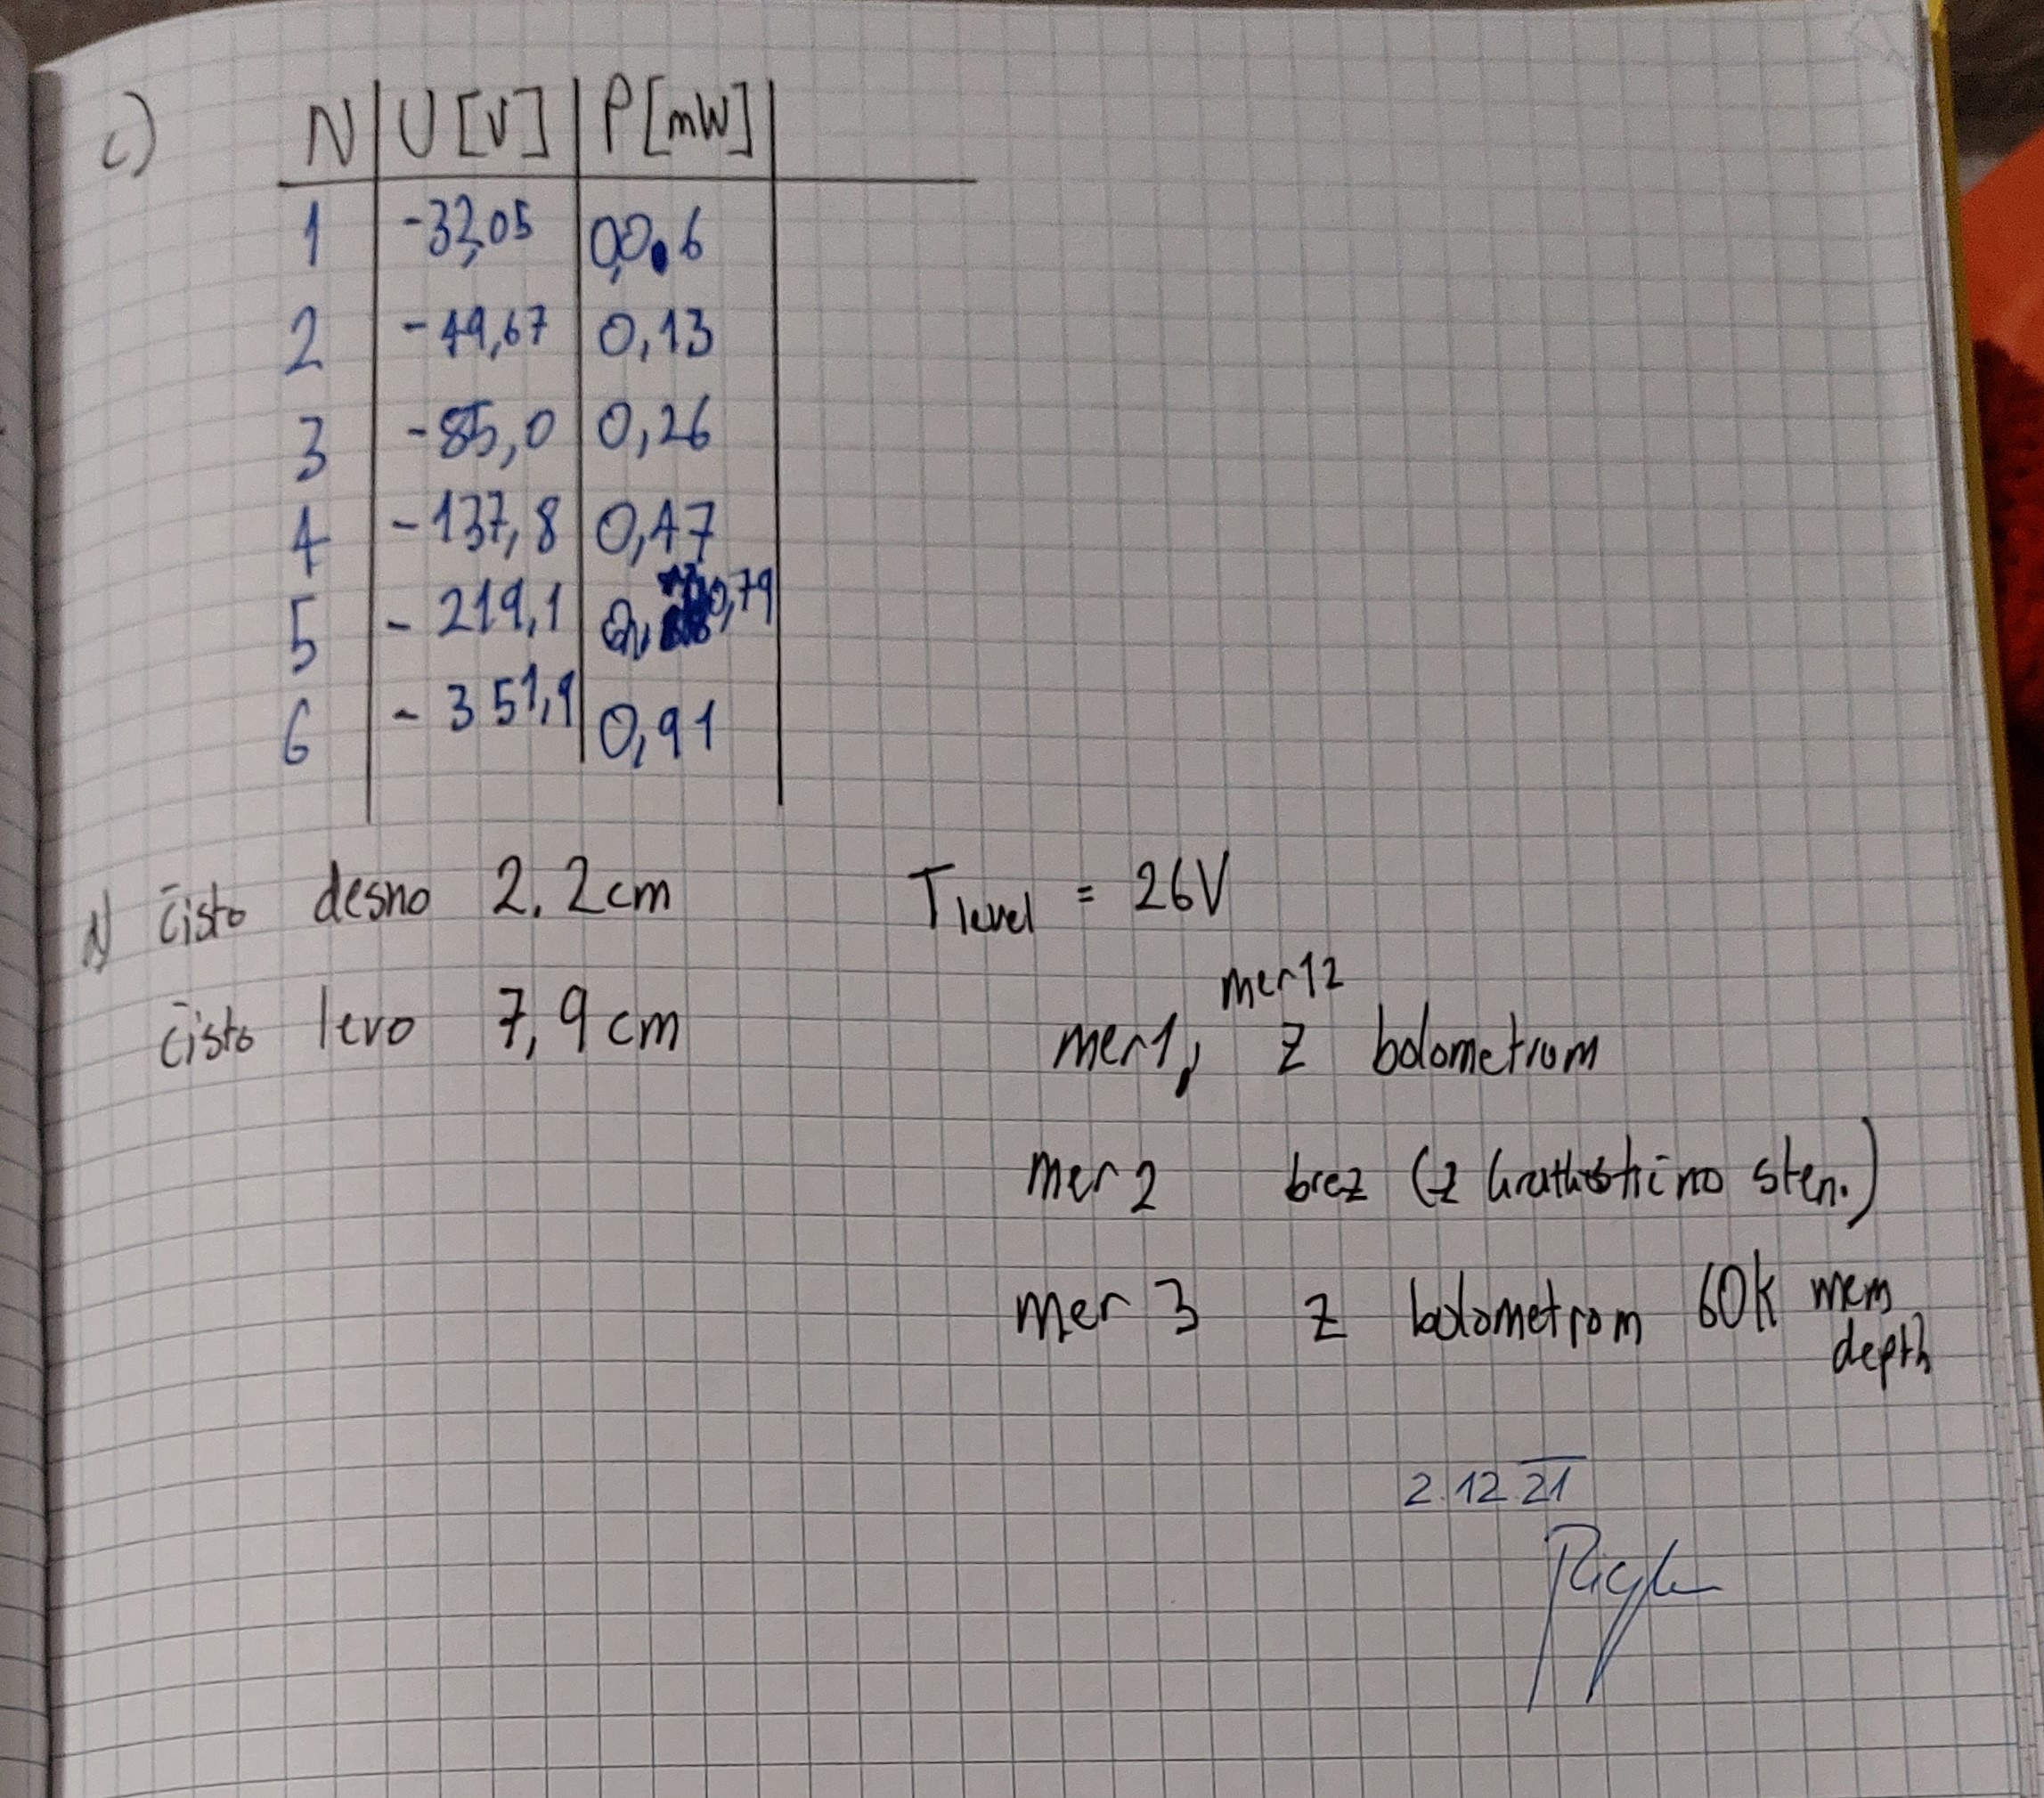 c) N U [V] P [mW]
1 -32,05 0,06
2 -49,67 0,13
3 -85,0 0,26
4 -137,8 0,47
5 -219,1 0,79
6 -351,9 0,91
čisto desno 2,2cm
čisto levo 7,9cm
Tlevel = 26V
mer12
mer1, z bolometrom
mer 2 brez (z sten.)
mer 3 z bolometrom 60k mem
depth
2.12.21